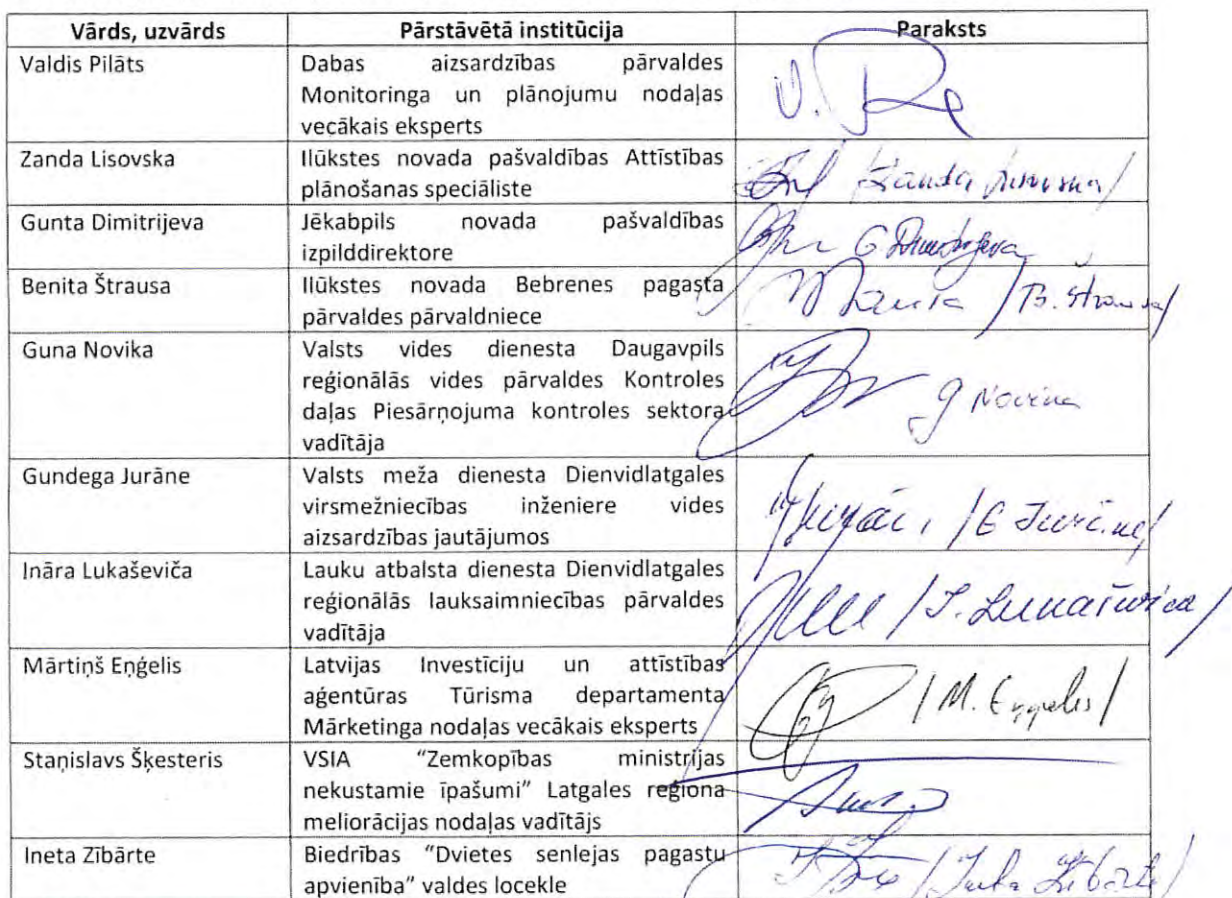 Vārds, uzvārds Pārstāvētā institūcija Paraksts
Valdis Pilāts Dabas aizsardzības pārvaldes
Monitoringa un plānojumu nodaļas
vecākais eksperts
V.
Zanda Lisovska Ilūkstes novada pašvaldības Attīstības
plānošanas speciāliste
Zanda Lisovska/
Gunta Dimitrijeva Jēkabpils novada pašvaldības
izpilddirektore
G Dimitrijeva
Benita Štrausa Ilūkstes novada Bebrenes pagasta
pārvaldes pārvaldniece
/B. Štrausa/
Guna Novika Valsts vides dienesta Daugavpils
reģionālās vides pārvaldes Kontroles
daļas Piesārņojuma kontroles sektora
vadītāja
G Novika
Gundega Jurāne Valsts meža dienesta Dienvidlatgales
virsmežniecības inženiere vides
aizsardzības jautājumos
/G Jurāne/
Ināra Lukaševiča Lauku atbalsta dienesta Dienvidlatgales
reģionālās lauksaimniecības pārvaldes
vadītāja
/I. Lukaševiča/
Mārtiņš Eņģelis Latvijas Investīciju un attīstības
aģentūras Tūrisma departamenta
Mārketinga nodaļas vecākais eksperts
/M. Eņģelis/
Staņislavs Šķesteris VSIA "Zemkopības ministrijas
nekustamie īpašumi" Latgales reģiona
meliorācijas nodaļas vadītājs
Ineta Zībārte Biedrības "Dvietes senlejas pagastu
apvienība" valdes locekle
/Ineta Zībārte/